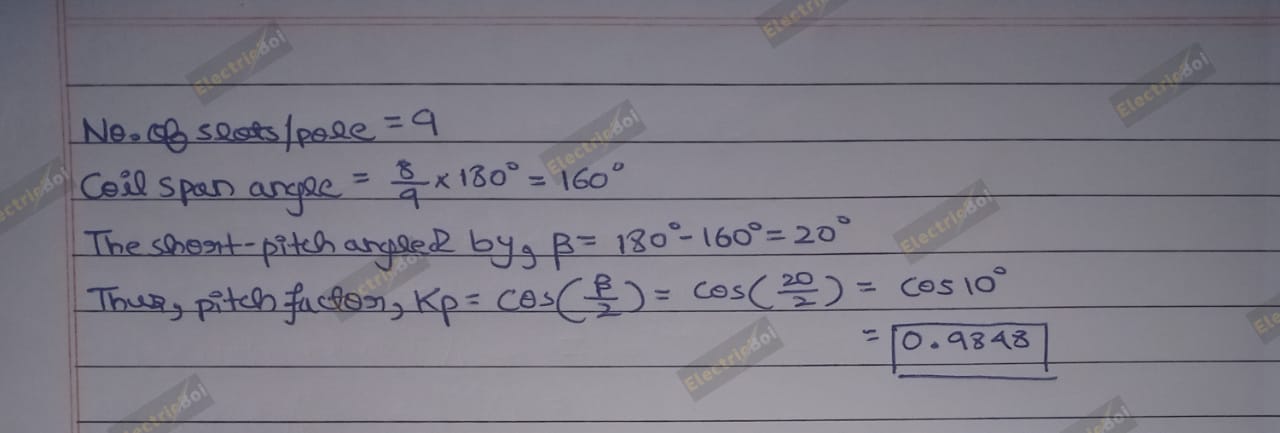 No. of slots/pole = 9
Coil span angle = 8/9 × 180° = 160°
The short-pitch angled by, β = 180° - 160° = 20°
Thus, pitch factor, Kp = cos(β/2) = cos(20/2) = cos 10°
= 0.9848